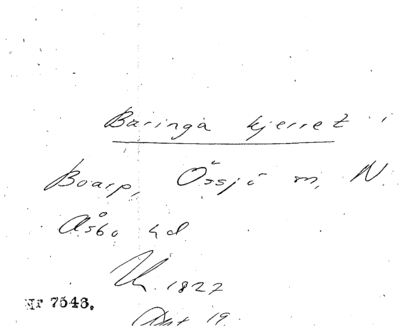 Baringa kjerret i
Boarp, Össjö m, N.
Åsbo hd
Uk. 1827
MF 7543.
19.